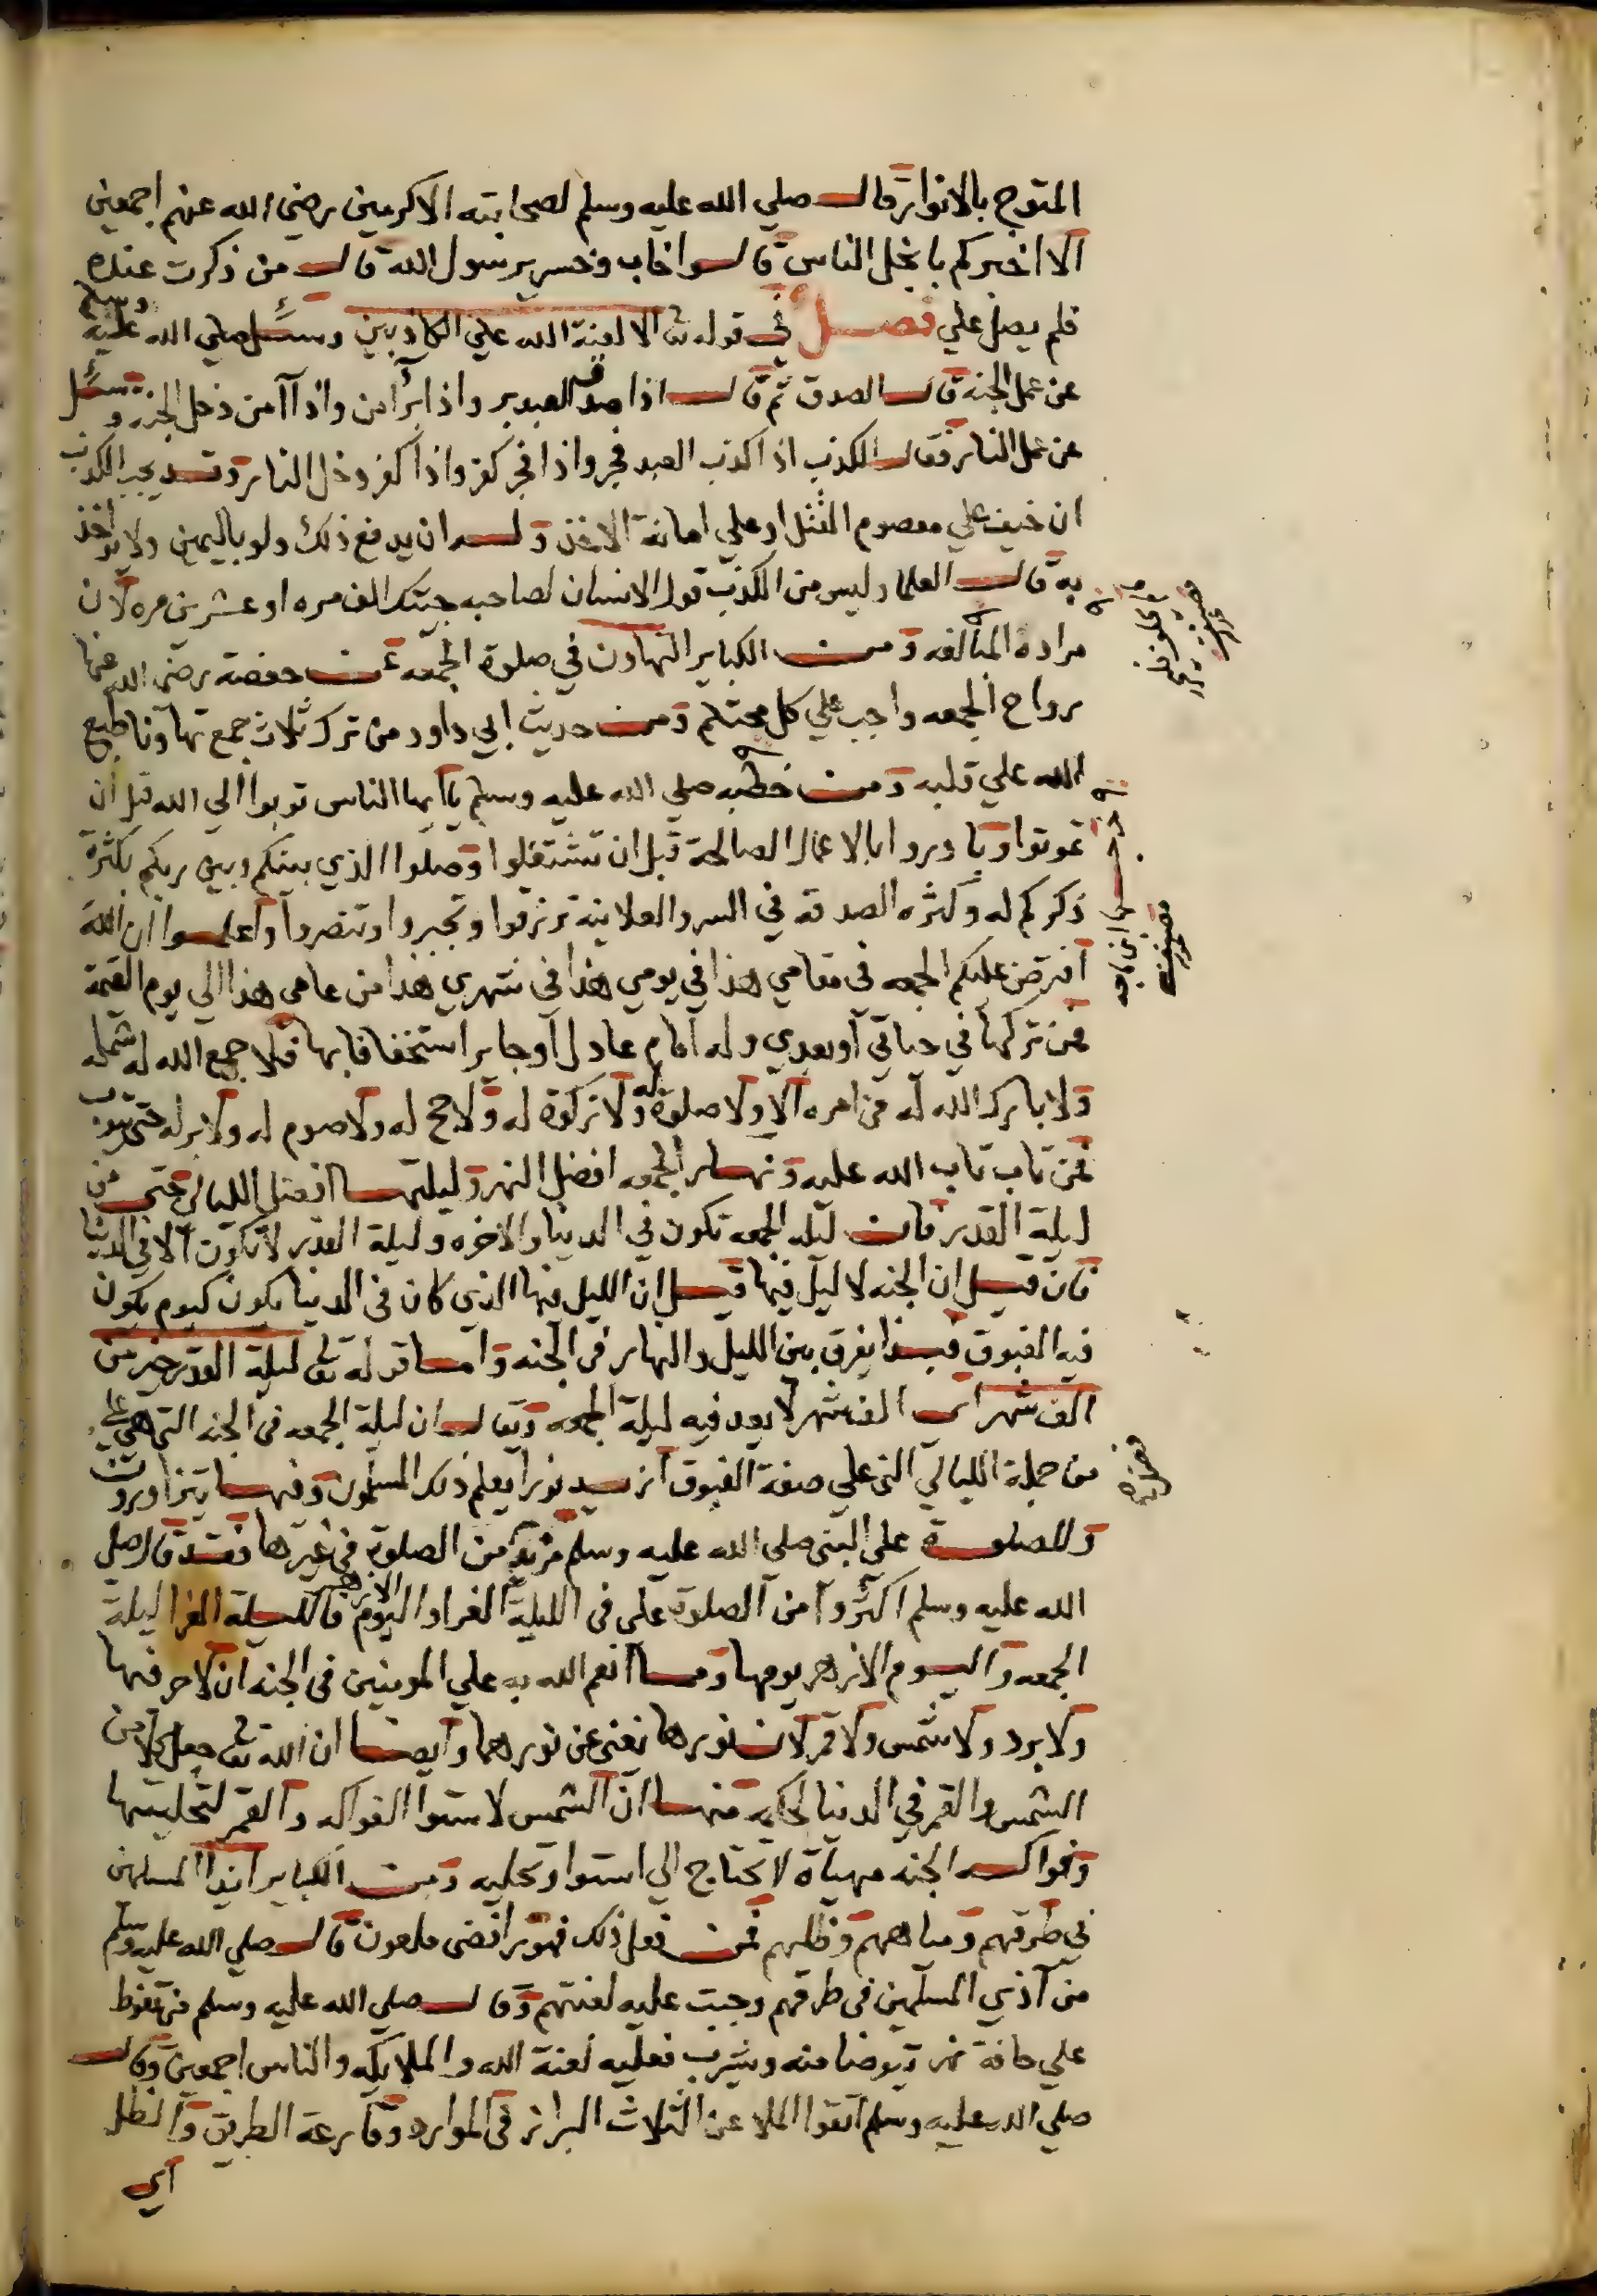 المتوج بالانوار قال صلي الله عليه وسلم لصحابته الاكرمين رضي الله عنهم اجمعين
الا اخبركم بابخل الناس قالوا خاب وخسر يرسول الله قال من ذكرت عنده
فلم يصل علي فصل في قوله تع الا لعنة الله علي الكاذبين وسئل صلي الله عليه وسلم
عن عمل الجنه قال الصدق ثم قال اذا صدق العبد بر واذا بر آمن واذا آمن دخل الجنه وسئل
عن عمل النار فقال الكذب اذا كذب العبد فجر واذا فجر كفر واذا كفر دخل النار وقد يجب الكذب
ان خيف علي معصوم القتل او علي امانة الاخذ وله ان يدفع ذلك ولو باليمين ولا يؤاخذ
به قال العلما وليس من الكذب قول الانسان لصاحبه جيتك الف مره او عشرين مره لان
مراده المبالغه ومن الكباير التهاون في صلوة الجمعه عن حفصة رضي الله عنها
رواح الجمعه واجب علي كل محتلم ومن حديث ابي داود من ترك ثلاث جمع تهاونا طبع
الله علي قلبه ومن خطبه صلي الله عليه وسلم يا ايها الناس توبوا الي الله قبل ان
تموتوا وبادروا بالاعمال الصالحة قبل ان تشتغلوا وصلوا الذي بينكم وبين ربكم بكثرة
ذكركم له وكثره الصدقه في السر والعلانية ترزقوا وتجبروا وتنصروا واعلموا ان الله
افترض عليكم الجمعه في مقامي هذا في يومي هذا في شهري هذا من عامي هذا الي يوم القيمة
فمن تركها في حياتي او بعدي وله امام عادل او جاير استخفافا بها فلا جمع الله له شمله
ولا بارك الله له في امره الا ولا صلوة له ولا زكوة له ولا حج له ولا صوم له ولا بر له حتي يتوب
فمن تاب تاب الله عليه ونهار الجمعه افضل النهر وليلتها افضل الليالي حتي من
ليلة القدر فان ليله الجمعه تكون في الدنيا والاخره وليلة القدر لا تكون الا في الدنيا
فان قيل ان الجنه لا ليل فيها قيل ان الليل فيها الذي كان في الدنيا يكون كيوم يكون
فيه الغبوق فبذا يفرق بين الليل والنهار في الجنه واما قوله تع ليلة القدر خير من
الف شهر اي الف شهر لا يعد فيه ليلة الجمعه ويقال ان ليلة الجمعه في الجنه التي هي علي
من جملة الليالي التي علي صفة الغبوق ازيد نورا يعلم ذلك المسلمون وفيها يتزاورون
وللصلوة علي النبي صلي الله عليه وسلم مزية من الصلوة في غيرها فقد قال صلي
الله عليه وسلم اكثروا من الصلوة علي في الليلة الغرا واليوم الازهر فالليلة الغرا ليلة
الجمعه واليوم الازهر يومها ومما انعم الله به علي المومنين في الجنه ان لا حر فيها
ولا برد ولا شمس ولا قمر لان نورها يغني عن نورهما وايضا ان الله تع جعل كلا من
الشمس والقمر في الدنيا لحكمة منها ان الشمس لاستوا الفواكه والقمر لتحليتها
وفواكه الجنه مهيأة لا تحتاج الي استوا وتحليه ومن الكباير ايذا المسلمين
في طرقهم ومياههم وظلهم فمن فعل ذلك فهو رافضي ملعون قال صلي الله عليه وسلم
من آذي المسلمين في طرقهم وجبت عليه لعنتهم وقال صلي الله عليه وسلم من تغوط
علي حافة نهر يتوضا منه ويشرب فعليه لعنة الله والملايكه والناس اجمعين وقال
صلي الله عليه وسلم اتقوا الملاعن الثلاث البراز في الموارد وقارعة الطريق والظل
اي